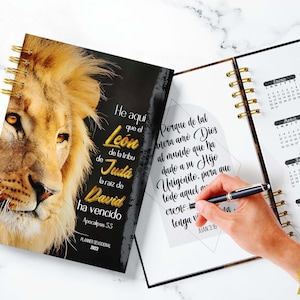 He aquí
que el
León
de la tribu
de Judá
la raíz de
David
ha vencido
Apocalipsis 5:5
PLANNER DEVOCIONAL
2023
Porque de tal
Dios
al mundo que ha
dado a su Hijo
Unigénito, para que
todo aquel
JUAN 3:16